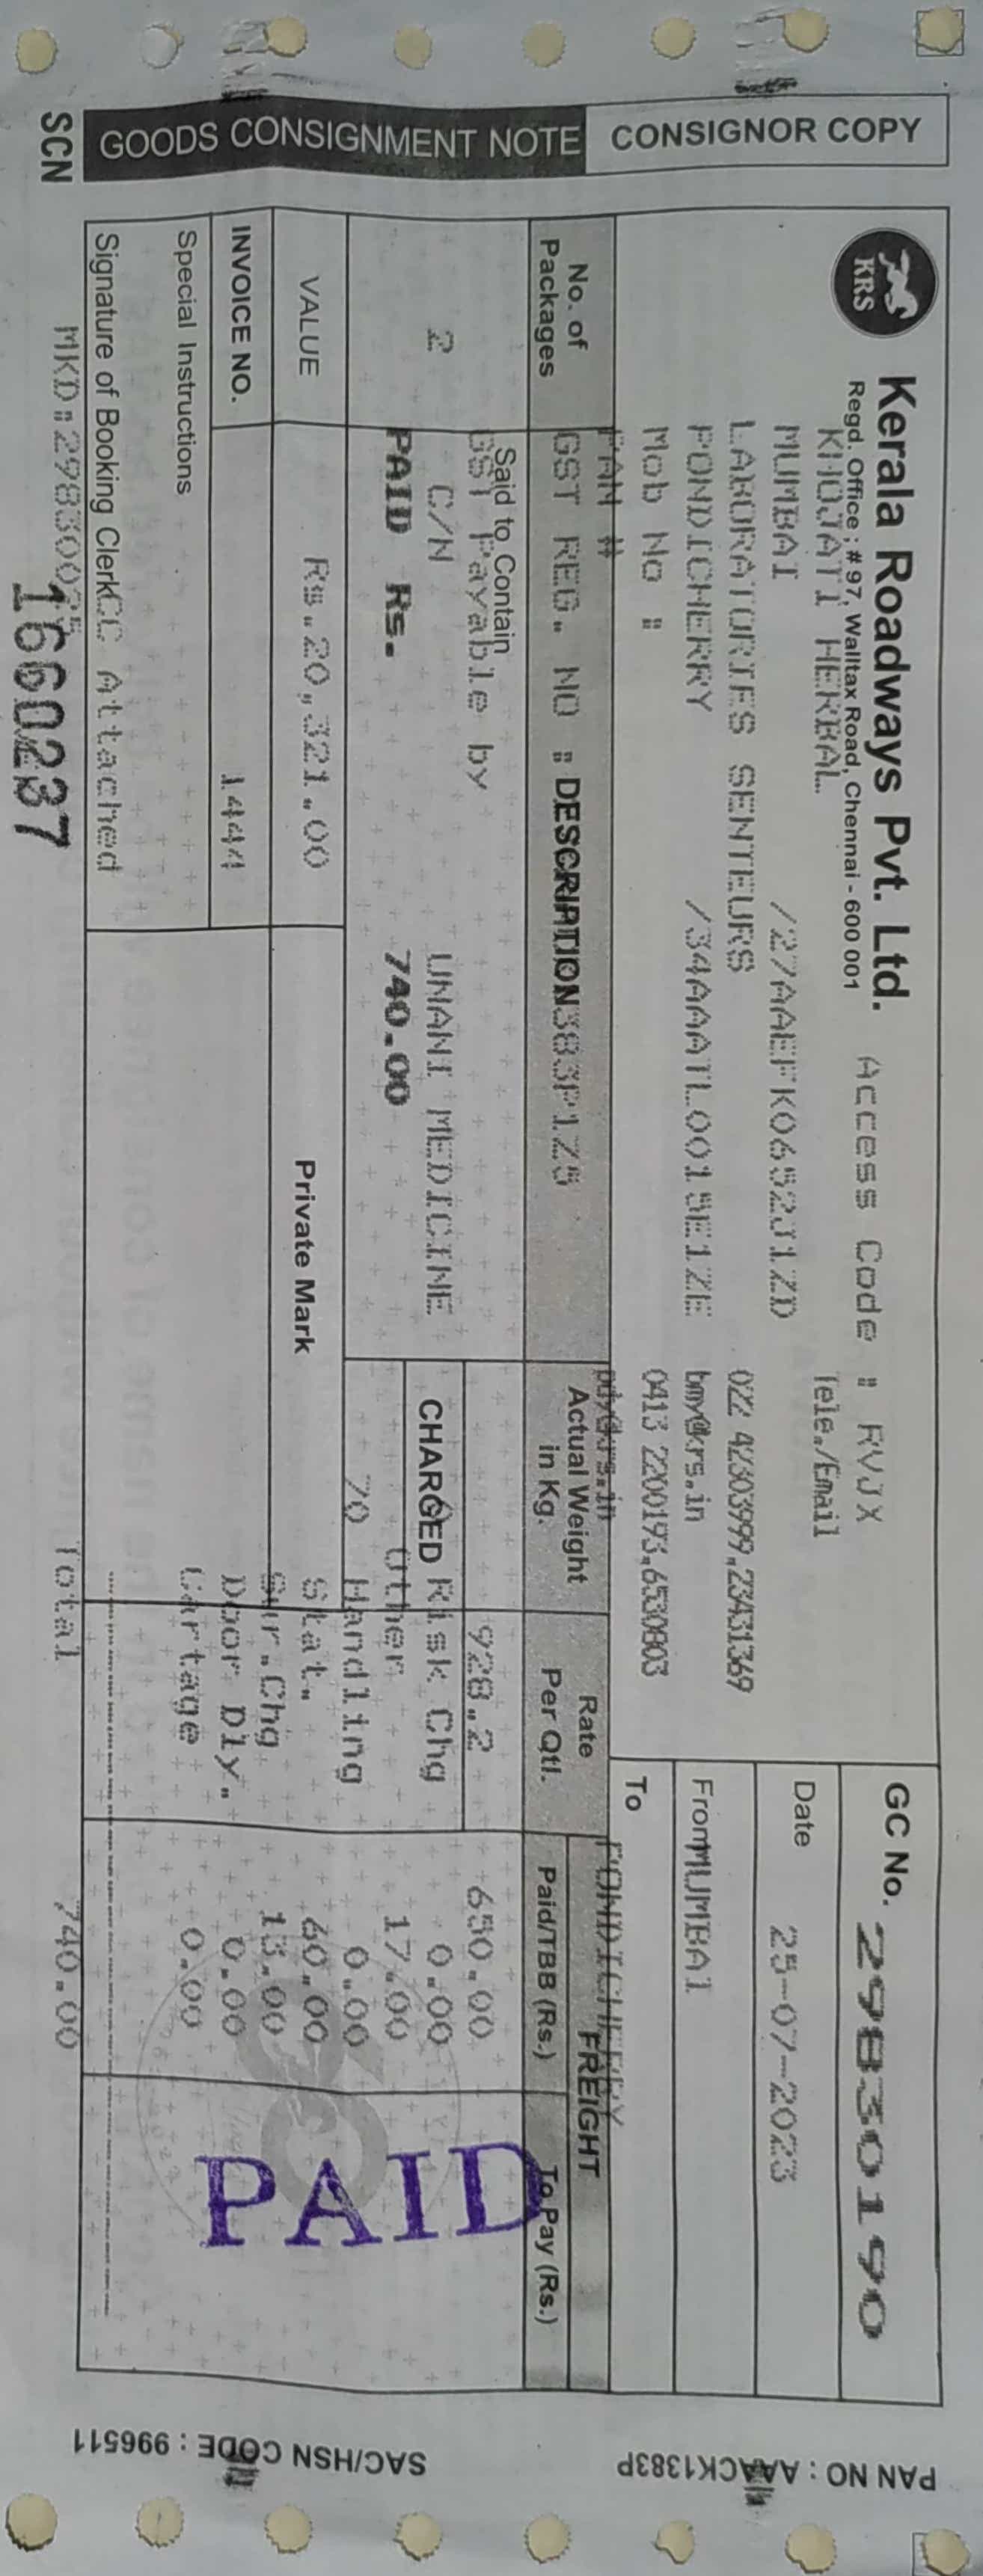 CONSIGNOR COPY
GOODS CONSIGNMENT NOTE
SCN
KRS
Kerala Roadways Pvt. Ltd.
Regd. Office : # 97, Walltax Road, Chennai - 600 001
Access Code : RVJX
KHOJATI HERBAL
Tele./Email
MUMBAI /27AAEFK0652J1ZD
022 42303999,23431369
LABORATORIES SENTEURS
bmy@krs.in
PONDICHERRY /34AAATL0015E1ZE
0413 2200193,6530803
Mob No :
pdy@krs.in
PAN #
GC No. 29830190
Date 25-07-2023
From MUMBAI
To PONDICHERRY
No. of Packages
GST REG. NO : DESCRIPTION 383P1Z5
Actual Weight in Kg.
Rate Per Qtl.
FREIGHT
Paid/TBB (Rs.)
To Pay (Rs.)
Said to Contain
GST Payable by
928.2 650.00
2 C/N UNANI MEDICINE
CHARGED Risk Chg 0.00
PAID Rs. 740.00
Other 17.00
70 Handling 0.00
VALUE Rs.20,321.00
Private Mark
Stat. 60.00
Sur.Chg 13.00
INVOICE NO. 1444
Door Dly. 0.00
Special Instructions
Cartage 0.00
Signature of Booking Clerk CC Attached
Total 740.00
PAID
1660237
PAN NO : AAACK1383P
SAC/HSN CODE : 996511